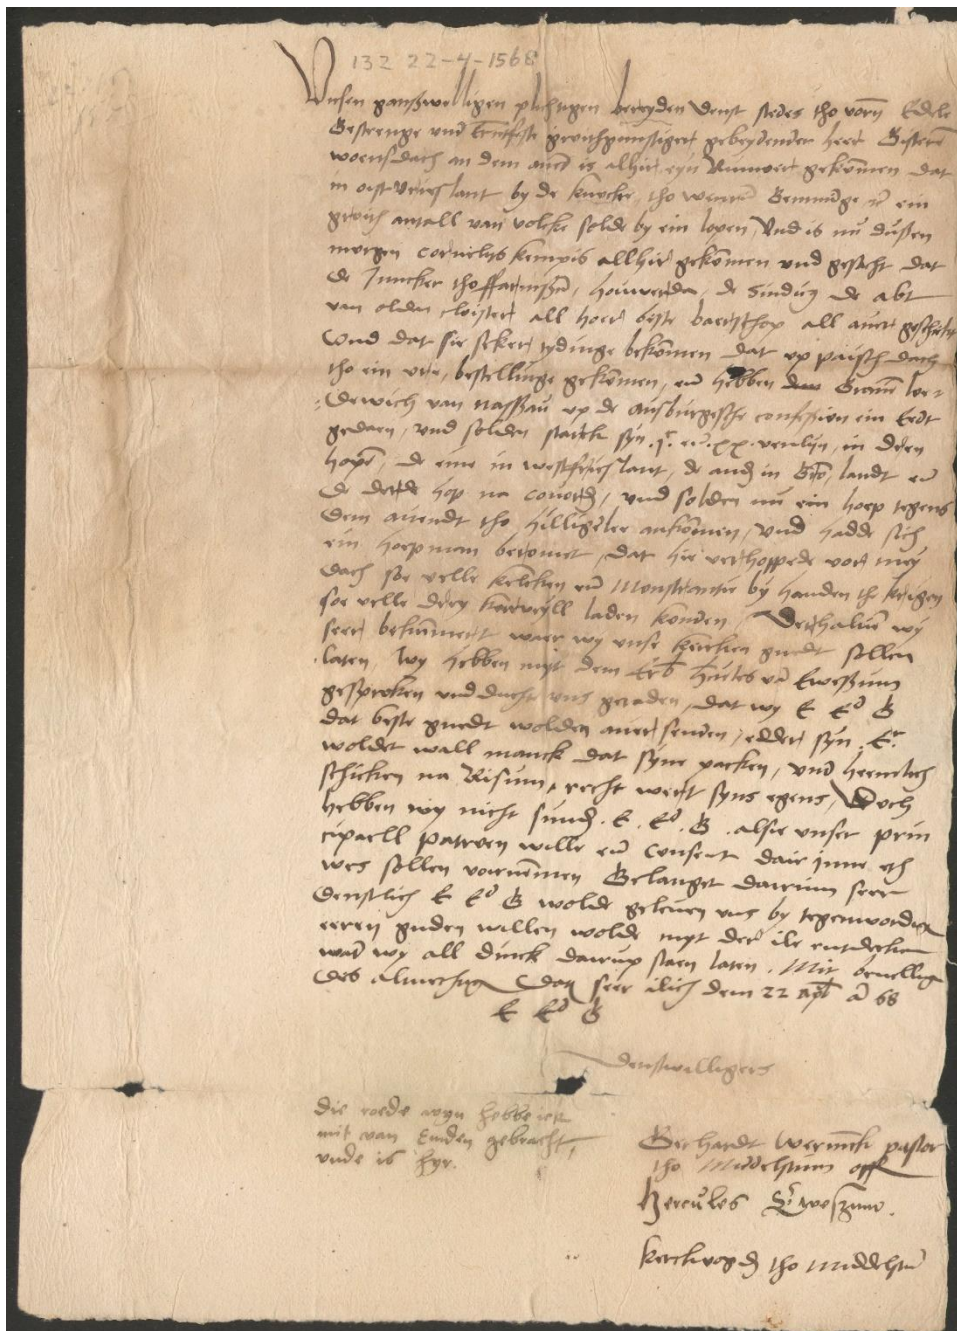 132 22-4-1568
Unsen ganßwilligen plichtigen bereyden denst stedes tho vorn Edele
Gestrenge und Erntfeste grothgunstiger gebeydender heer Gisteren
woensdach an dem avent is alhir eyn Rumoer gekomen dat
in oistvrieslant by de knocke tho
groith antall van volcke solde by ein lopen, Und is nu dußen
morgen Cornelys kempis allhir gekomen und gesecht dat
de Juncker tho ffarmßum, houwerda, de Sindicus de abt
van olden cloister all hoer beste baerschop all aver geschickt
Und dat sie seker tydinge bekomen dat up paisch dach
tho ein ure, bestellinge gekomen, en hebben Grave
dewich van Nassau up de ausburgesche confession ein Eedt
gedaen, und solden starck syn xx venlyn, in dren
hopen, de eine in westfrieslant, de ander in Gro. landt en
de derde hop na Covorden, und solden nu ein hoep tegens
dem avendt tho hilligerlee ankomen, und hadde sich
ein hoepman beromet, dat hie verhoppede vor mey
dach soe velle kelcken en Monstrantie by handen tho krigen
soe velle drey laden konden, Derhalven wy
seer bekummert waer wy unse kercken guedt sollen
laten, Wy hebben myt dem Erb hercules van Ewßum
gesproken und ducht uns geraden, dat wy E Ed G
dat beste guedt wolden aver senden, edder syn E
woldet wall manck dat syne packen, und heemelich
schicken na Risum, recht weert syns egens, Doch
hebben wy nicht sunder E. Ed. G. alsie unser prin
cipaell Patroen wille en Consent dair inne eth
wes sollen vornemmen Gelanget dairum seer
denstlich E Ed G wolde geleven uns by tegenwordigen
eeren guden willen wolde myt der ile entdecken
wat wy all dinck dairup staen laten. Mit bevellig
des almechtig Dat seer ilich dem 22 Apl A 68
E Ed G
denstwilligers
die roede wyn hebbe ick
mit van Emden gebracht,
unde is hyr.
Gerhardt pastor
tho Middelstum
Hercules Ewesßum.
kerckvogd tho Middelstum